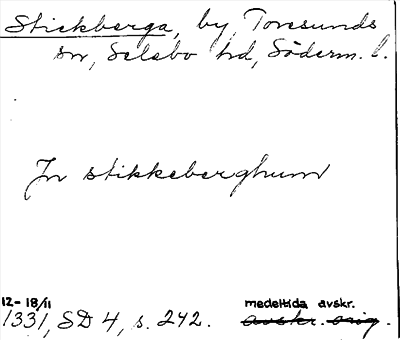 Stickberga, by, Toresunds
sn, Selebo hd, Söderm. l.
In stikkeberghum
12-18/11 medeltida avskr.
1331, SD 4, s. 242. avskr. orig.